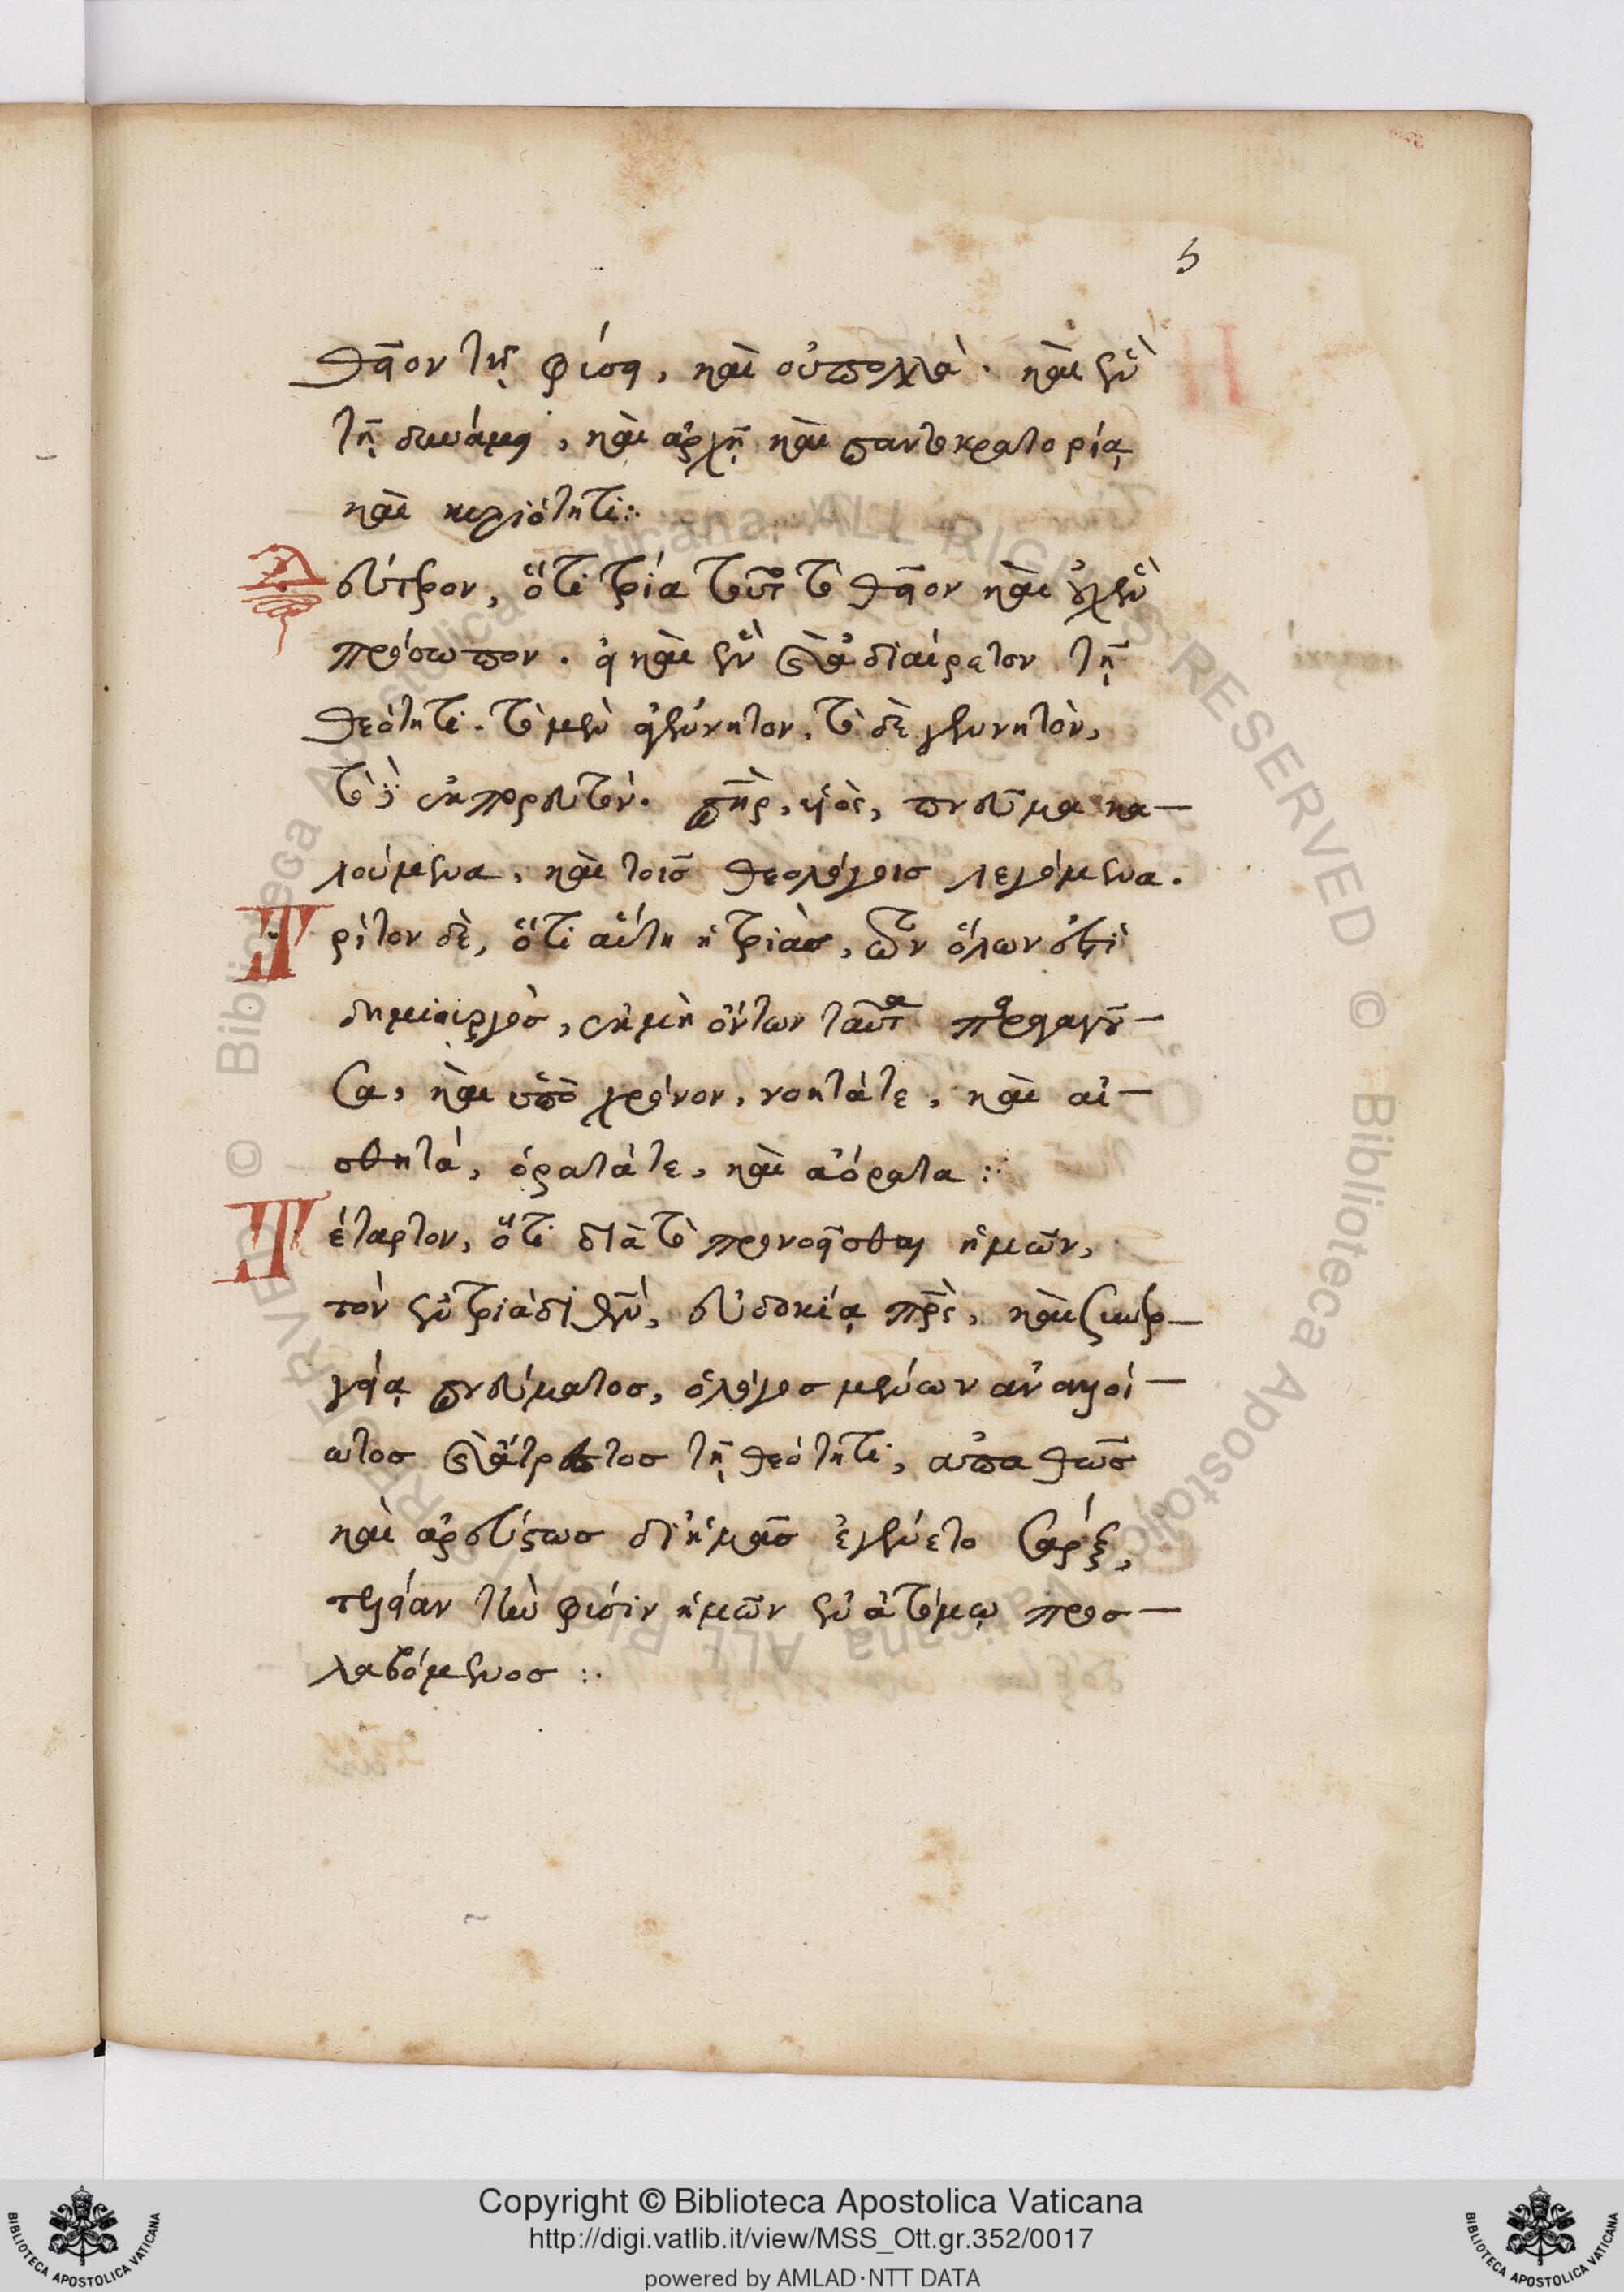 5
θεῖον τῇ φύσει, καὶ οὐ πολλὰ· καὶ ἓν
τῇ δυνάμει, καὶ ἀρχῇ καὶ παντοκρατορίᾳ
καὶ κυριότητι:·
Δεύτερον, ὅτι τρία τοῦτο τὸ θεῖον καὶ ἔχει
πρόσωπον. εἰ καὶ ἓν καὶ ἀδιαίρετον τῇ
θεότητι. τὸ μὲν ἀγέννητον, τὸ δὲ γεννητὸν,
τὸ δὲ ἐκπορευτόν. πηρ, υἱὸς, πνεῦμα κα-
λούμενα, καὶ τοῖς θεολόγοις λεγόμενα.
Τρίτον δὲ, ὅτι αὕτη ἡ τριὰς, τῶν ὅλων ἐστὶ
δημιουργὸς, ἐκ μὴ ὄντων ταῦτα παραγαγοῦ-
σα, καὶ ὑπὸ χρόνον, νοητά τε, καὶ αἰ-
σθητά, ὁρατά τε, καὶ ἀόρατα:·
Τέταρτον, ὅτι διὰ τὸ προνοεῖσθαι ἡμῶν,
τὸν ἐν τριάδι θν, εὐδοκίᾳ πρς, καὶ συνερ-
γείᾳ πνεύματος, ὁ λόγος μένων ἀναλλοί-
ωτος καὶ ἄτρεπτος τῇ θεότητι, ἀπαθῶς
καὶ ἀρεύστως δι' ἡμᾶς ἐγένετο σάρξ,
τελείαν τὴν φύσιν ἡμῶν ἐν ἀτόμῳ προσ-
λαβόμενος:·
Copyright © Biblioteca Apostolica Vaticana
http://digi.vatlib.it/view/MSS_Ott.gr.352/0017
powered by AMLAD·NTT DATA
BIBLIOTECA APOSTOLICA VATICANA
BIBLIOTECA APOSTOLICA VATICANA